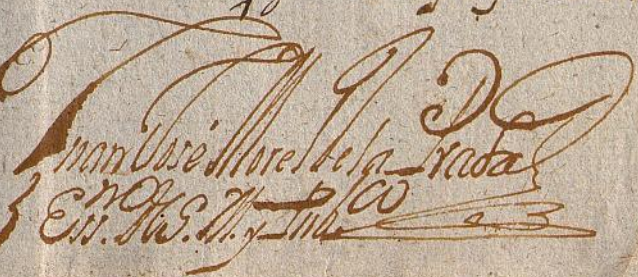 Juan José Morel de la Prada
Essno. de S. M. y Pubco